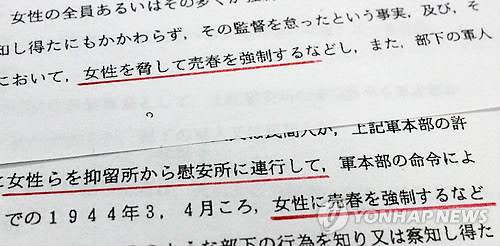 女性の全員あるいはその多くが
知し得たにもかかわらず，その監督を怠ったという事実，及び，そ
において，女性を脅して売春を強制するなどし，また，部下の軍人
民間人が，上記軍本部の許
に女性らを抑留所から慰安所に連行して，軍本部の命令によ
での１９４４年３，４月ころ，女性に売春を強制するなど
うな部下の行為を知り又は察知し得た
YONHAP NEWS